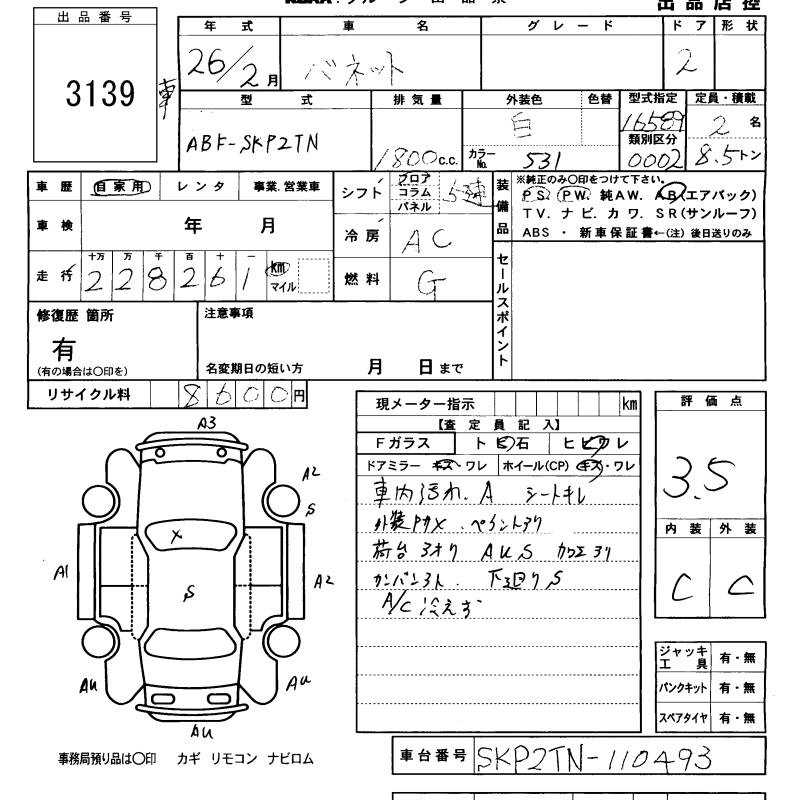 出品店控
出品番号
3139
車
年式 車名 グレード ドア 形状
26/2月 バネット 2
型式 排気量 外装色 色替 型式指定 定員・積載
ABF-SKP2TN 1800c.c. 白 16589 2名
カラーNo. 531 類別区分 0002 8.5トン
車歴 自家用 レンタ 事業.営業車
車検 年 月
走行 十万 万 千 百 十 一
228261 km マイル
シフト フロア コラム パネル 5速
冷房 AC
燃料 G
装備品 ※純正のみ〇印をつけて下さい。
PS. PW. 純AW. AB(エアバック)
TV. ナビ. カワ. SR(サンルーフ)
ABS ・ 新車保証書←(注) 後日送りのみ
セールスポイント
修復歴 箇所
有
(有の場合は〇印を)
注意事項
名変期日の短い方 月 日まで
リサイクル料 8600円
現メーター指示 km
【査定員記入】
Fガラス トビ石 ヒビワレ
ドアミラー キズ・ワレ ホイール(CP) キズ・ワレ
車内汚れ. A シートキレ
外装 . ペイントアリ
荷台 AUS カロエアリ
カンバン . 下廻りS
A/C冷えず
評価点
3.5
内装 外装
C C
A3
A2
S
X
A1
S
A2
AU
AU
AU
ジャッキ工具 有・無
パンクキット 有・無
スペアタイヤ 有・無
事務局預り品は〇印 カギ リモコン ナビロム
車台番号 SKP2TN-110493